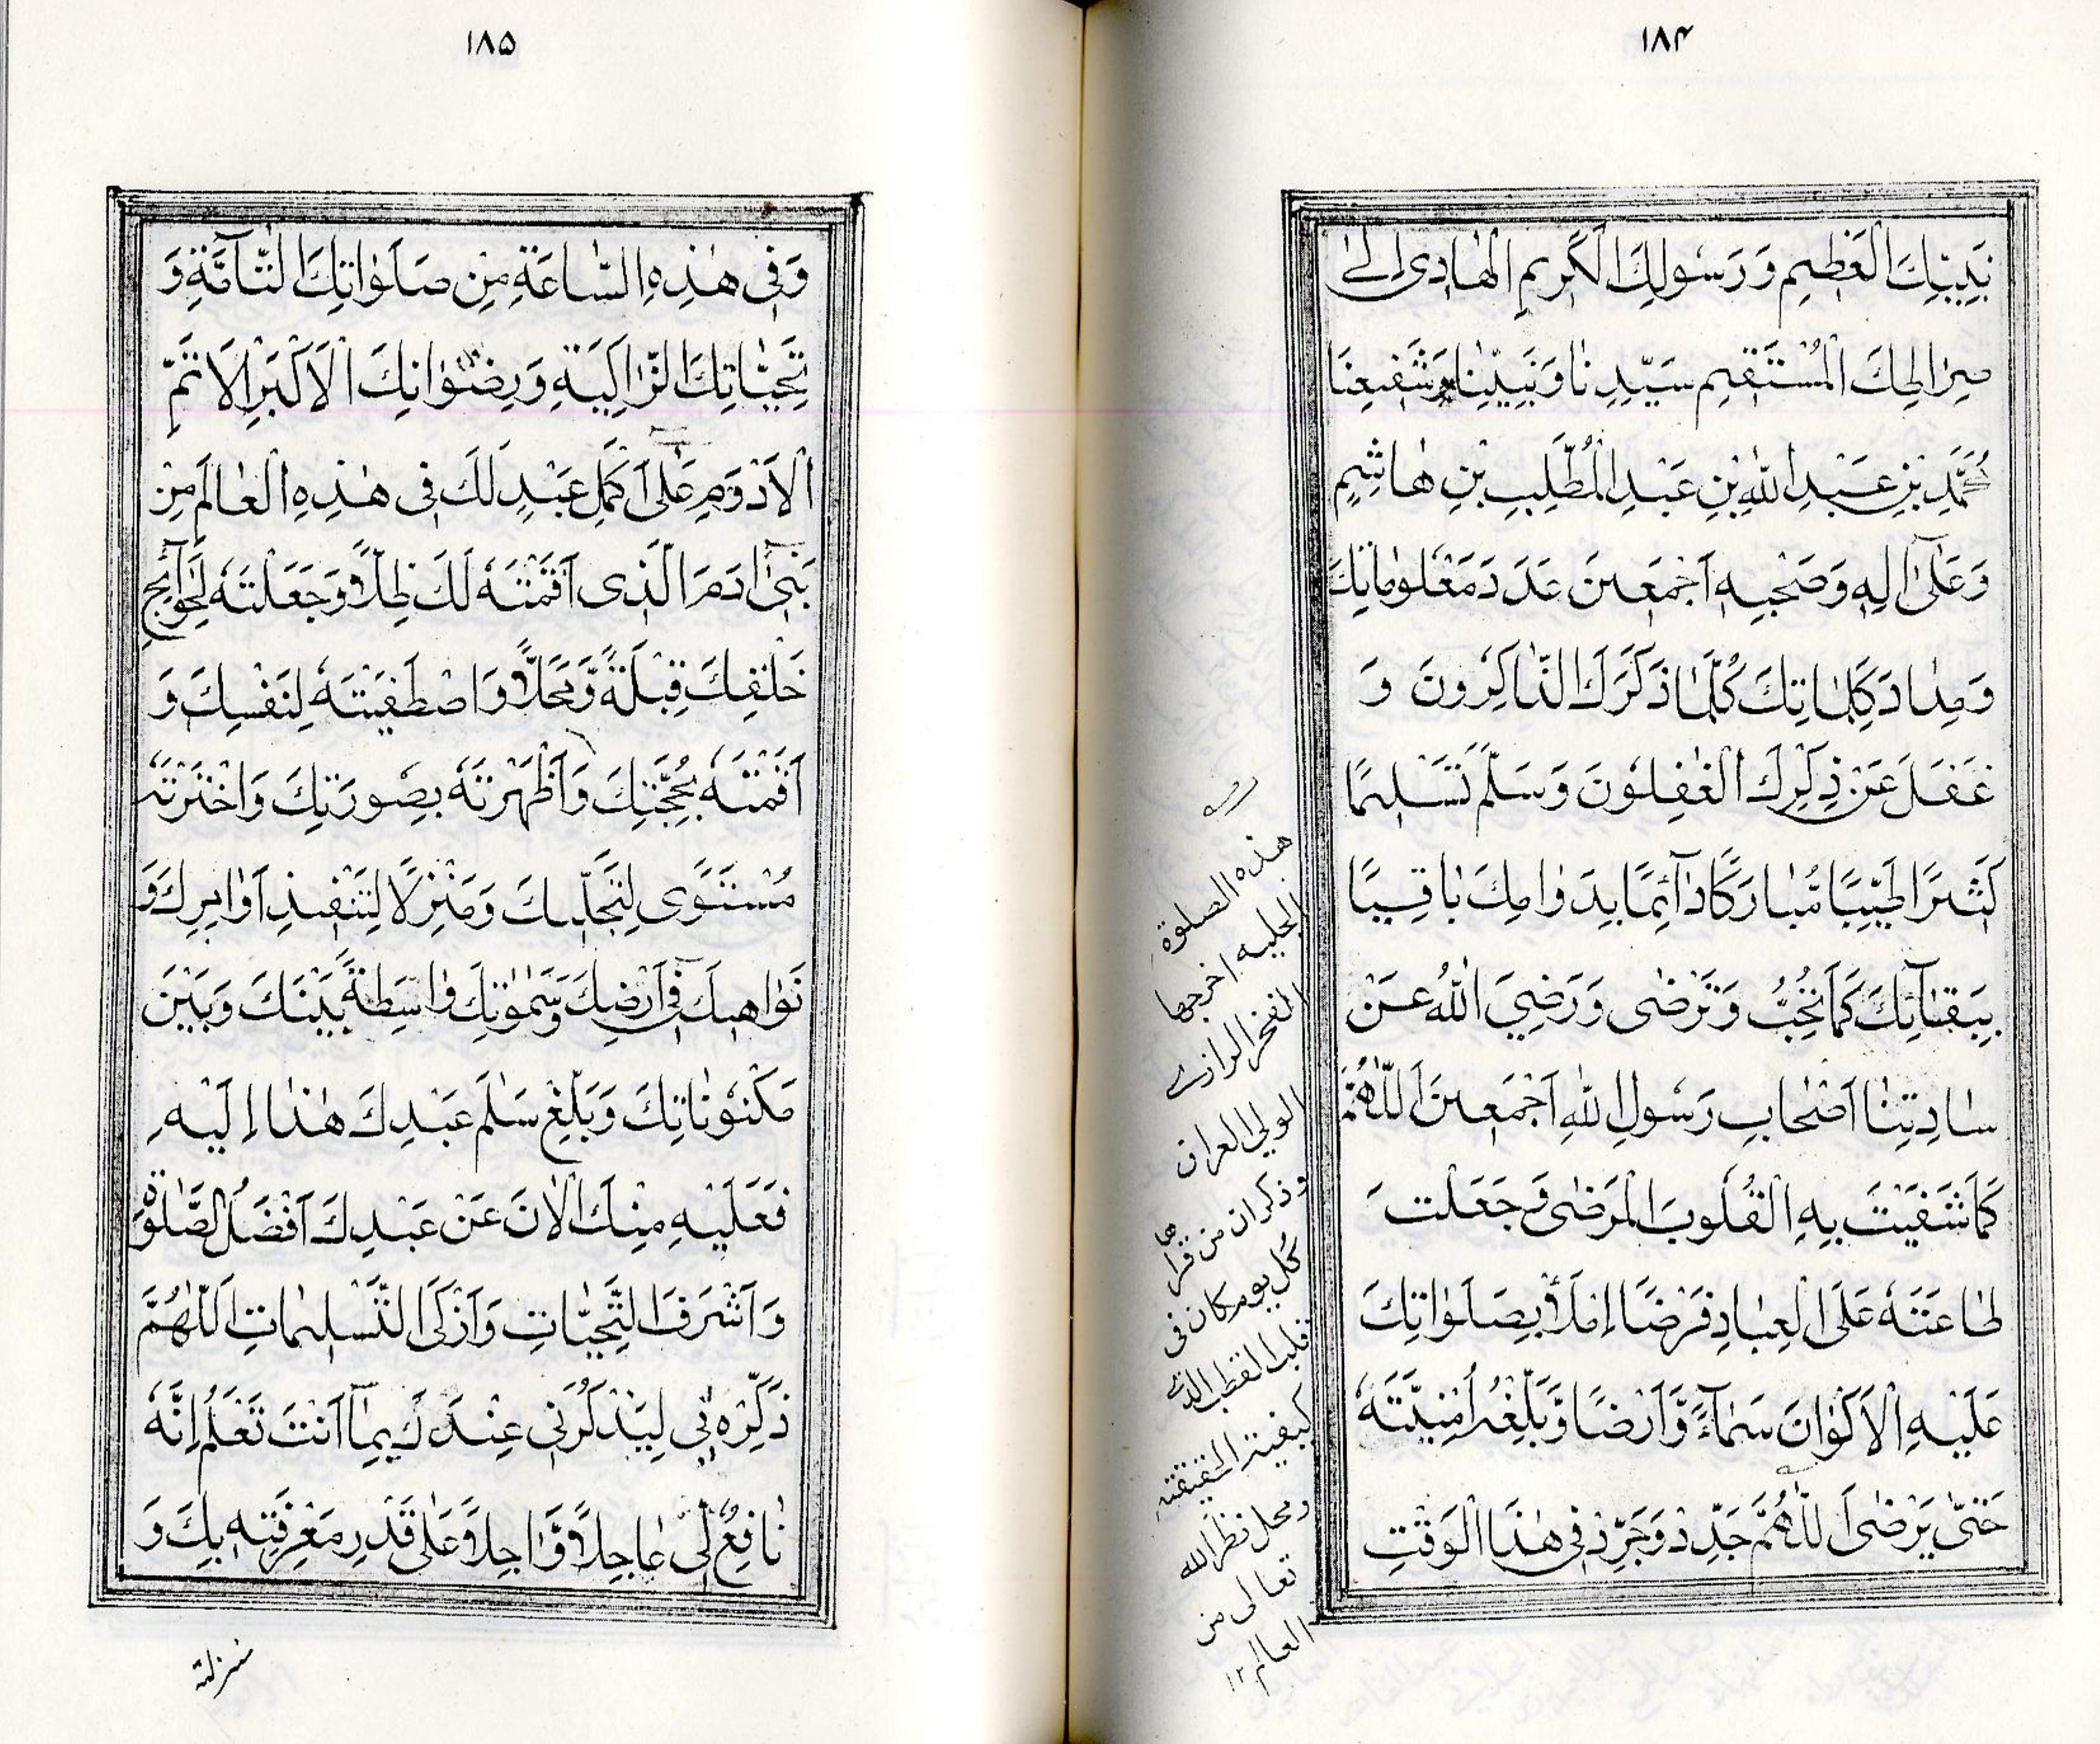 ١٨٤
نَبِيِّكَ الْعَظِيْمِ وَرَسُولِكَ الْكَرِيمِ الْهَادِى اِلٰى
صِرَاطِكَ الْمُسْتَقِيْمِ سَيِّدِنَا وَنَبِيِّنَا وَشَفِيعِنَا
مُحَمَّدِ بْنِ عَبْدِ اللهِ بْنِ عَبْدِ الْمُطَّلِبِ بْنِ هَاشِمٍ
وَعَلٰى اٰلِهٖ وَصَحْبِهٖ اَجْمَعِينَ عَدَدَ مَعْلُومَاتِكَ
وَمِدَادَ كَلِمَاتِكَ كُلَّمَا ذَكَرَكَ الذَّاكِرُونَ وَ
غَفَلَ عَنْ ذِكْرِكَ الْغٰفِلُونَ وَسَلَّمَ تَسْلِيمًا
كَثِيرًا طَيِّبًا مُّبَارَكًا دَآئِمًا بِدَوَامِكَ بَاقِيًا
بِبَقَآئِكَ كَمَا تُحِبُّ وَتَرْضٰى وَرَضِيَ اللهُ عَنْ
سَادَتِنَا اَصْحَابِ رَسُولِ اللهِ اَجْمَعِينَ اَللّٰهُمَّ
كَمَا شَفَيْتَ بِهِ الْقُلُوبَ الْمَرْضٰى وَجَعَلْتَ
طَاعَتَهٗ عَلَى الْعِبَادِ فَرْضًا اِمْلَأْ بِصَلَوَاتِكَ
عَلَيْهِ الْاَكْوَانَ سَمَآءً وَّاَرْضًا وَّبَلِّغْهُ اُمْنِيَّتَهٗ
حَتّٰى يَرْضٰى اَللّٰهُمَّ جَدِّدْ وَجَرِّدْ فِى هٰذَا الْوَقْتِ
هذه الصلوة
الجليه اخرجها
الفخر الرازى
وذكر ان من قراها
كل يوم كان فى
قلب القطب
ومحل نظر الله
تعالى من
العالم ١٢
١٨٥
وَفِى هٰذِهِ السَّاعَةِ مِنْ صَلَوَاتِكَ التَّآمَّةِ وَ
تَحِيَّاتِكَ الزَّاكِيَةِ وَرِضْوَانِكَ الْاَكْبَرِ الْاَتَمِّ
الْاَدْوَمِ عَلٰى اَكْمَلِ عَبْدٍ لَكَ فِى هٰذِهِ الْعَالَمِ مِنْ
بَنِىٓ اٰدَمَ الَّذِى اَقَمْتَهٗ لَكَ ظِلًّا وَجَعَلْتَهٗ لِحَوَآئِجِ
خَلْقِكَ قِبْلَةً وَّمَحَلًّا وَاصْطَفَيْتَهٗ لِنَفْسِكَ وَ
اَقَمْتَهٗ بِحُجَّتِكَ وَاَظْهَرْتَهٗ بِصُورَتِكَ وَاخْتَرْتَهٗ
مُسْتَوًى لِتَجَلِّيكَ وَمَنْزِلًا لِتَنْفِيذِ اَوَامِرِكَ وَ
نَوَاهِيكَ فِى اَرْضِكَ وَسَمٰوٰتِكَ وَاسِطَةً بَيْنَكَ وَبَيْنَ
مَكْنُونَاتِكَ وَبَلِّغْ سَلٰمَ عَبْدِكَ هٰذَا اِلَيْهِ
فَعَلَيْهِ مِنْكَ الْاٰنَ عَنْ عَبْدِكَ اَفْضَلُ الصَّلٰوةِ
وَاَشْرَفَ التَّحِيَّاتِ وَاَزْكَى التَّسْلِيمَاتِ اَللّٰهُمَّ
ذَكِّرْهُ بِى لِيَذْكُرَنِى عِنْدَكَ بِمَآ اَنْتَ تَعْلَمُ اِنَّهٗ
نَافِعٌ لِّى عَاجِلًا وَّاٰجِلًا عَلٰى قَدْرِ مَعْرِفَتِهٖ بِكَ وَ